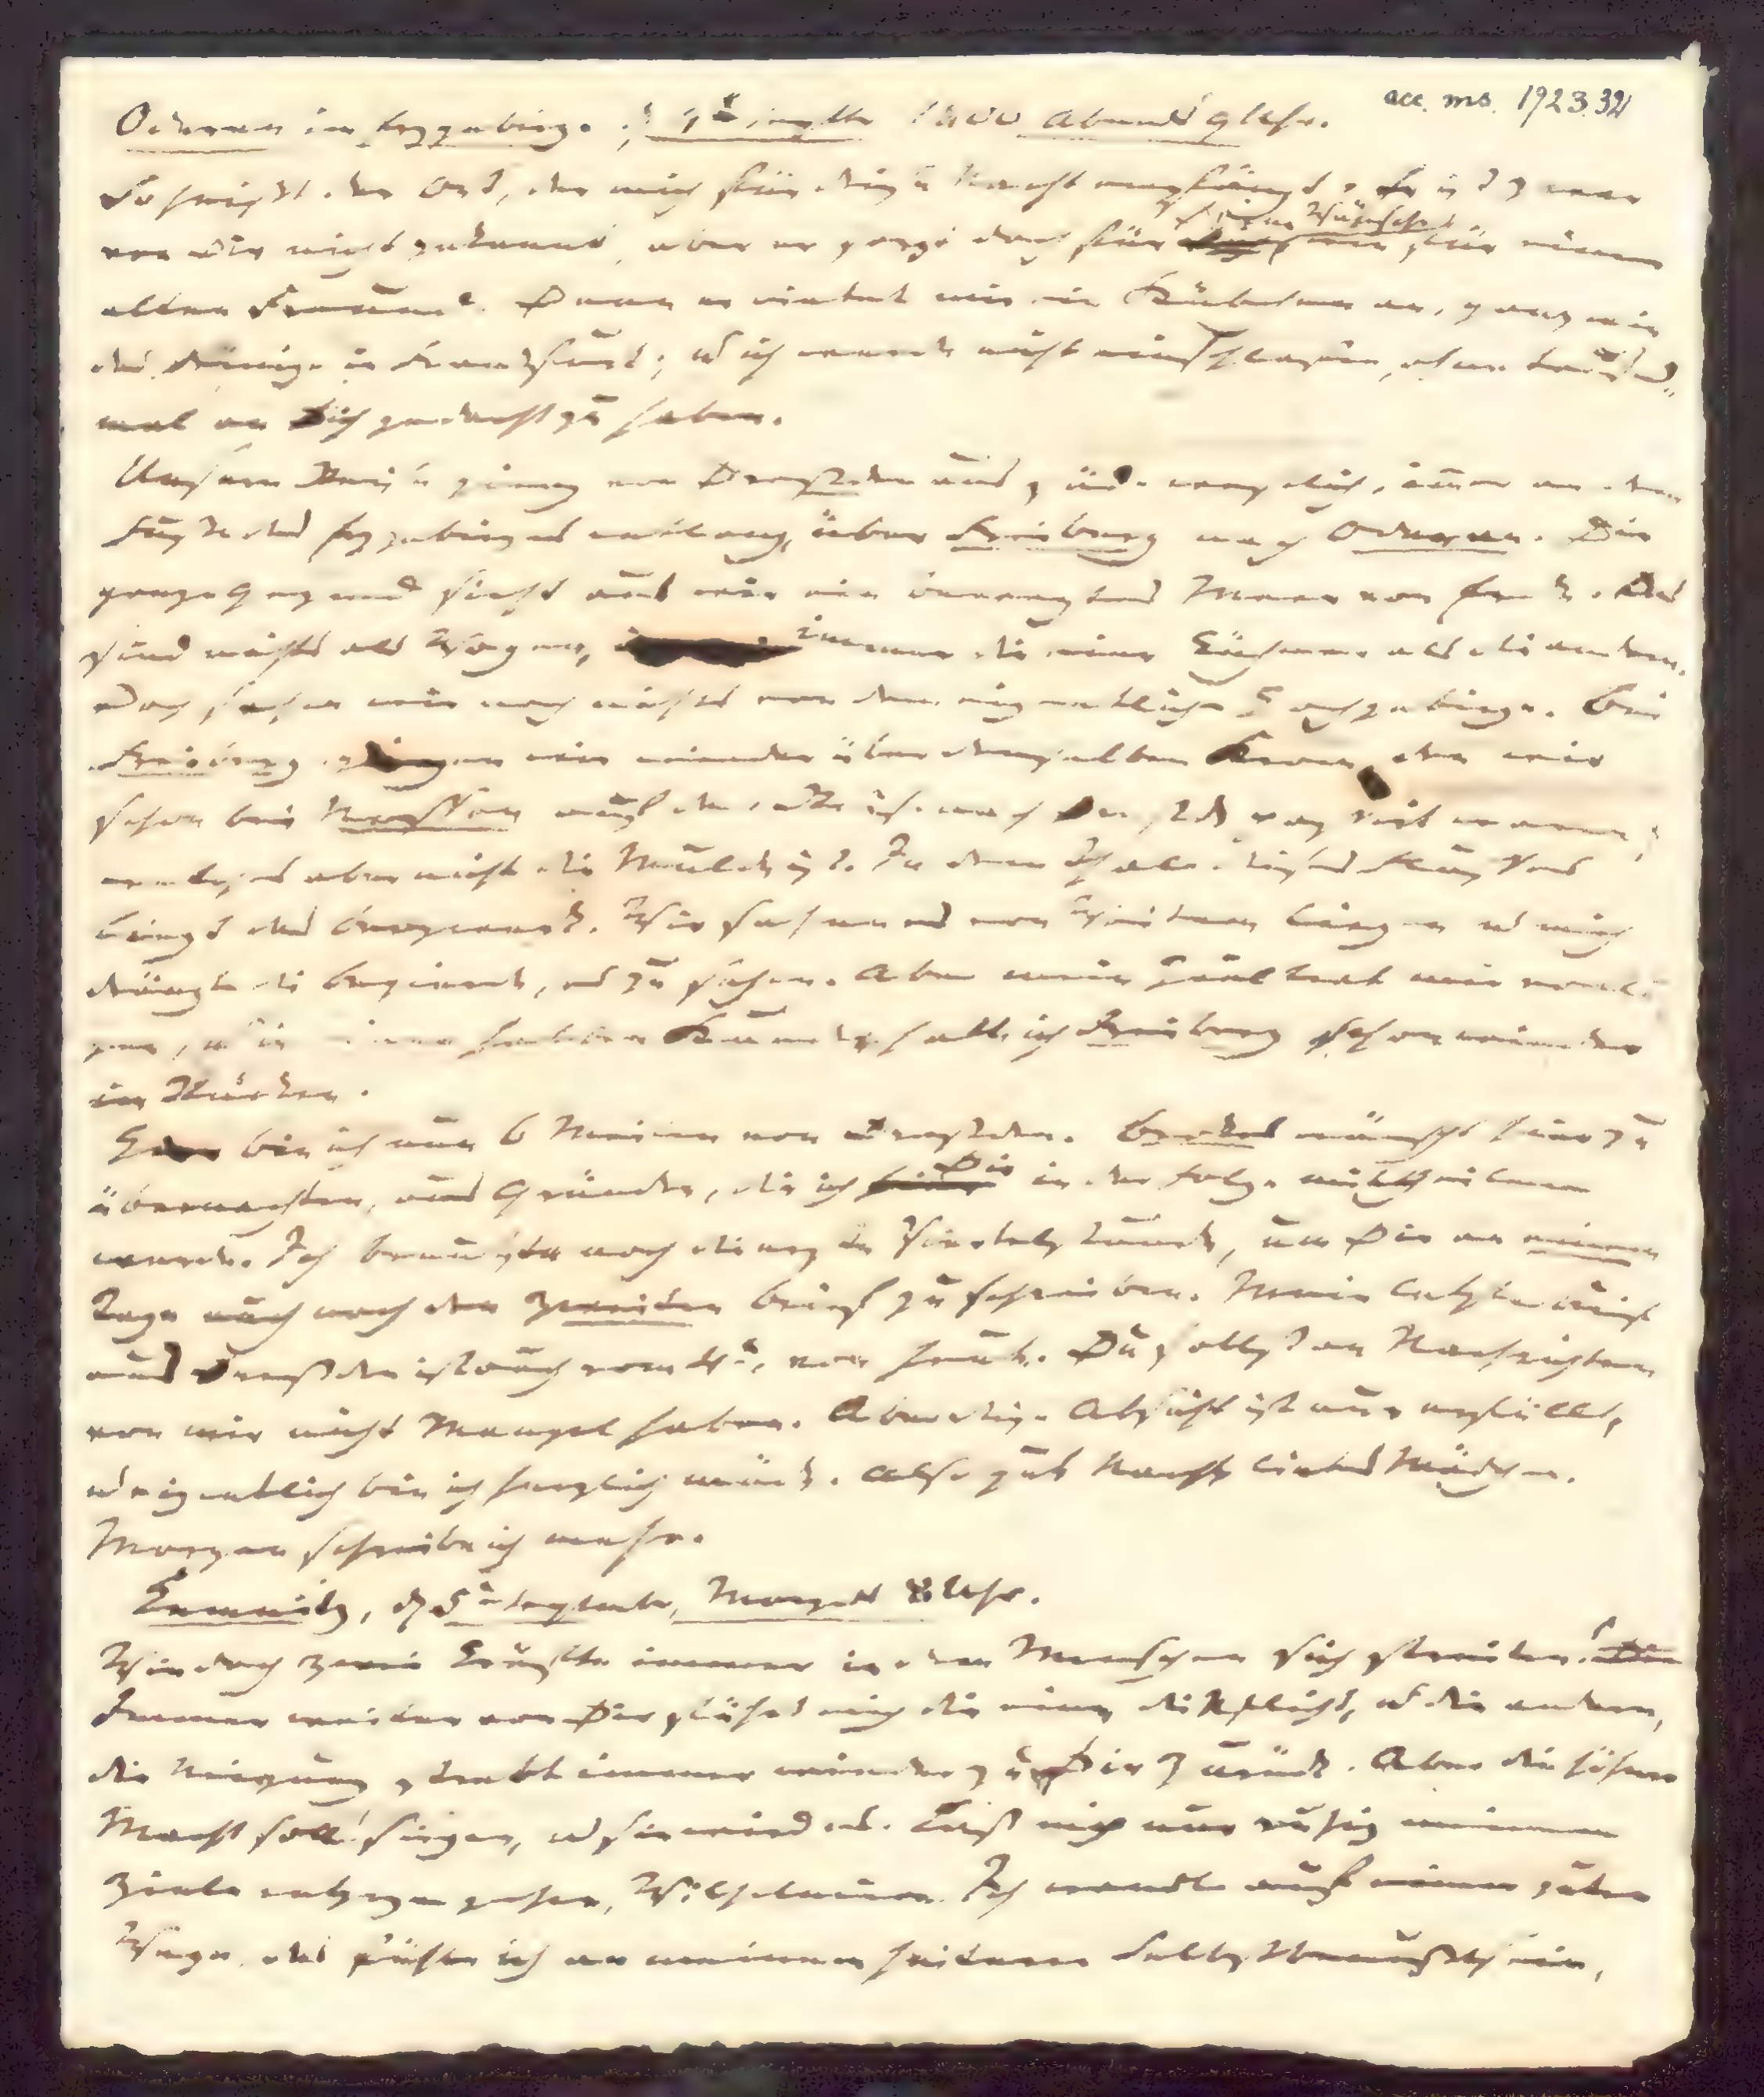 acc. ms. 1923.32
Oederan im Erzgebirge, d. 4t Septbr 1800 Abends 9 Uhr.
So heißt der Ort, der mich für diese Nacht empfängt. Er ist zwar
von Dir nicht gekannt, aber er sorgt doch für Deine Wünsche wie für einen
alten Freund. Denn er bietet mir ein Stübchen an, ganz wie
das Deinige in Frankfurt; u ich werde nicht einschlafen, ohne tausend-
mal an Dich gedacht zu haben.
Unsere Reise ging von Dresden aus südwestlich, immer an dem
Fuße des Erzgebirges entlang, über Freiberg nach Oederan. Die
ganze Gegend sieht aus wie ein bewegtes Meer von Erde. Das
sind nichts als Wogen, immer die eine kühner als die andere.
Doch sahen wir noch nichts von dem eigentlichen Hochgebirge. Bei
Freiberg gingen wir wieder über denselben Strom, den wir
schon bei Nossen auf der Reise nach Dresden passirt waren;
welches aber nicht die Mulde ist. In dem Thale dieses Flusses
liegt das Bergwerk. Wir sahen es von Weitem liegen u mich
drängte die Begierde, es zu sehen. Aber mein Ziel trat mir vor Au-
gen, u in einer halben Stunde hatte ich Freiberg schon wieder
im Rücken.
Hier bin ich nun 6 Meilen von Dresden. Brokes wünscht hier zu
übernachten, aus Gründen, die ich Dir in der Folge mittheilen
werde. Ich benutze noch die erste Viertelstunde, um Dir an einem
Tage auch noch den zweiten Brief zu schreiben. Mein letzter Brief
aus Dresden ist auch vom 4t, von heute. Du sollst an Nachrichten
von mir nicht Mangel haben. Aber diese Absicht ist nun erfüllt,
u eigentlich bin ich herzlich müde. Also gute Nacht, liebes Mädchen.
Morgen schreibe ich mehr.
Chemnitz, d 5t Septembr, Morgens 8 Uhr.
Wie doch zwei Kräfte immer in dem Menschen sich streiten!
Immer weiter von Dir führt mich die eine, die Pflicht, u die andere,
die Neigung, strebt immer wieder zu Dir zurück. Aber die höhere
Macht soll siegen, u sie wird es. Laß mich nur ruhig meinem
Ziele entgegen gehen, Wilhelmine. Ich wandle auf einem guten
Wege, das fühle ich an meinem heitern Selbstbewußtsein,